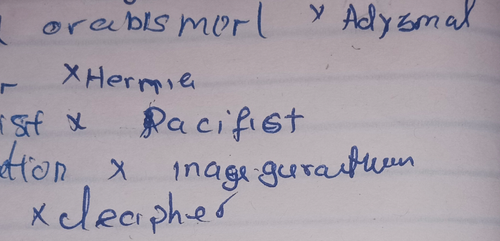 orabismorl x Adysmal
x Hermia
ist x Pacifist
tion x inage-guration
x decipher